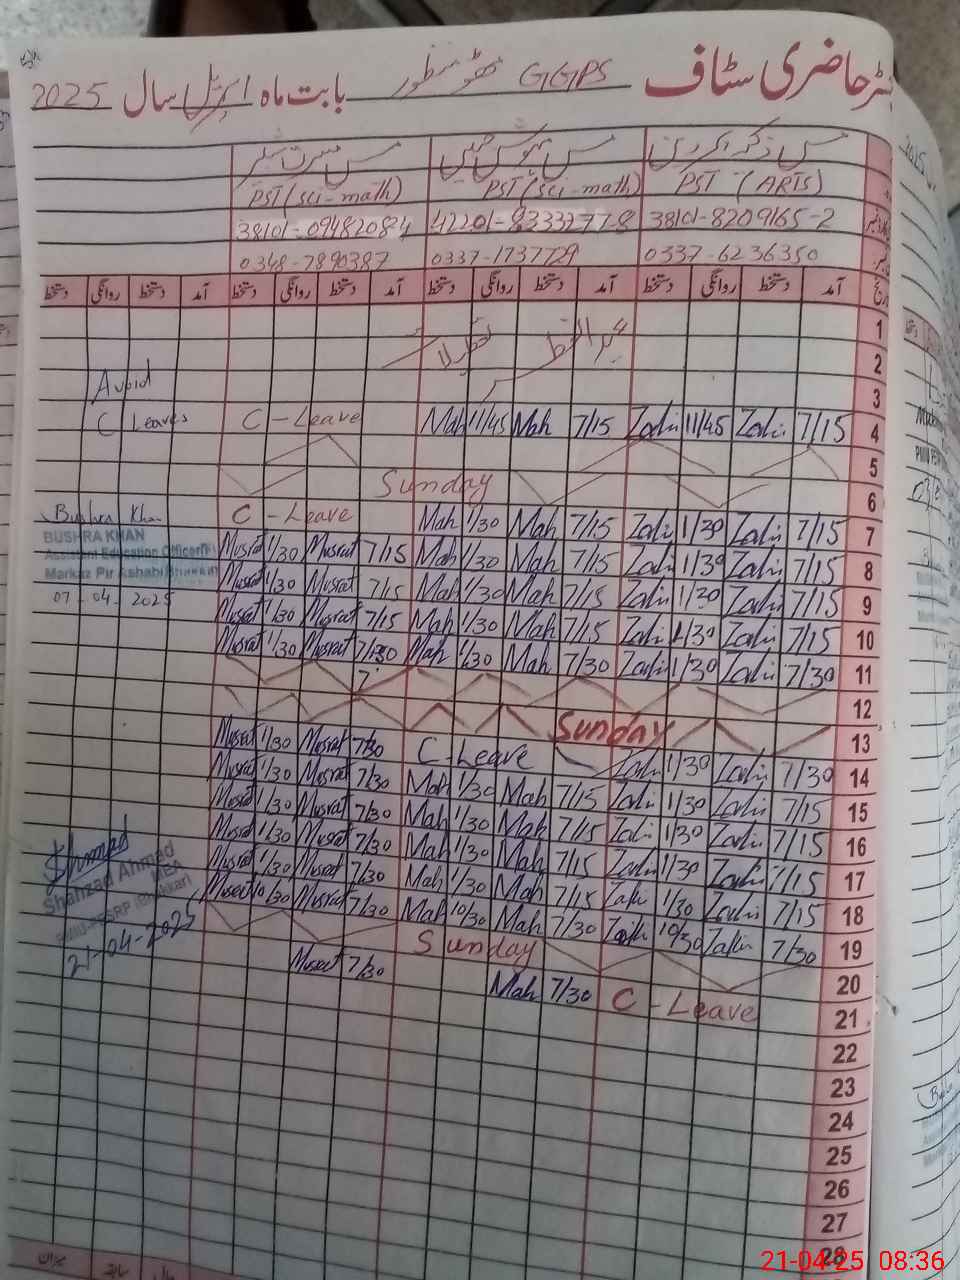 رجسٹر حاضری سٹاف GGPS بابت ماہ اپریل سال 2025
PST (ARTS) PST (sci-math) PST (sci-math)
38101-8209165-2 42201-8333277-8 38101-0948208-4
0337-6236350 0337-1737729 0348-7890387
آمد دستخط روانگی دستخط آمد دستخط روانگی دستخط آمد دستخط روانگی دستخط آمد دستخط روانگی دستخط
1
2
3 Avoid
4 7/15 Zakir 11/45 Zakir 7/15 Mah 11/45 Mah C-Leave C Leaves
5
6 Sunday
7 7/15 Zakir 1/30 Zakir 7/15 Mah 1/30 Mah C-Leave Bushra Khan
BUSHRA KHAN
Assistant Education Officer(F)
Markaz Pir Ashabi Bhakkar
07-04-2025
8 7/15 Zakir 1/30 Zakir 7/15 Mah 1/30 Mah 7/15 Musrat 1/30 Musrat
9 7/15 Zakir 1/30 Zakir 7/15 Mah 1/30 Mah 7/15 Musrat 1/30 Musrat
10 7/15 Zakir 1/30 Zakir 7/15 Mah 1/30 Mah 7/15 Musrat 1/30 Musrat
11 7/30 Zakir 1/30 Zakir 7/30 Mah 1/30 Mah 7/30 Musrat 1/30 Musrat
12
13 Sunday
14 7/30 Zakir 1/30 Zakir C-Leave 7/30 Musrat 1/30 Musrat
15 7/15 Zakir 1/30 Zakir 7/15 Mah 1/30 Mah 7/30 Musrat 1/30 Musrat
16 7/15 Zakir 1/30 Zakir 7/15 Mah 1/30 Mah 7/30 Musrat 1/30 Musrat
17 7/15 Zakir 1/30 Zakir 7/15 Mah 1/30 Mah 7/30 Musrat 1/30 Musrat
18 7/15 Zakir 1/30 Zakir 7/15 Mah 1/30 Mah 7/30 Musrat 1/30 Musrat
19 7/30 Zakir 10/30 Zakir 7/30 Mah 10/30 Mah 7/30 Musrat 10/30 Musrat
Shahzad Ahmad
MEA
21-04-2025
20 Sunday
21 C-Leave 7/30 Mah 7/30 Musrat
22
23
24
25
26
27
28
21-04-25 08:36